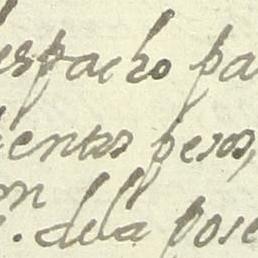 espacho pa
ientas pesos,
on
. dela pose